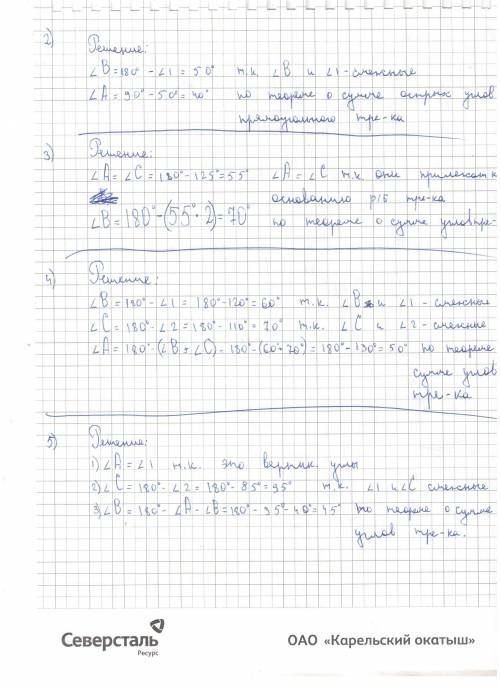 2)
Решение:
∠B=180° - ∠1 = 50° т.к. ∠B и ∠1-смежные
∠A = 90° - 50° = 40° по теореме о сумме острых углов
прямоугольного тре-ка
3)
Решение:
∠A = ∠C = 180° - 125° = 55° ∠A = ∠C т.к. они прилежат к
основанию р/б тре-ка
∠B = 180° - (55° · 2) = 70° по теореме о сумме углов тре-
4)
Решение:
∠B = 180° - ∠1 = 180° - 120° = 60° т.к. ∠B и ∠1 - смежные
∠C = 180° - ∠2 = 180° - 110° = 70° т.к. ∠C и ∠2 - смежные
∠A = 180° - (∠B + ∠C) - 180° - (60°+70°) = 180° - 130° = 50° по теореме
сумме углов
тре-ка
5)
Решение:
1) ∠A = ∠1 т.к. это вертик. углы
2) ∠C = 180° - ∠2 = 180° - 85° = 95° т.к. ∠1 и ∠C смежные
3) ∠B = 180° - ∠A - ∠B = 180° - 95° - 40° = 45° по теореме о сумме
углов тре-ка.
Северсталь
Ресурс
ОАО «Карельский окатыш»